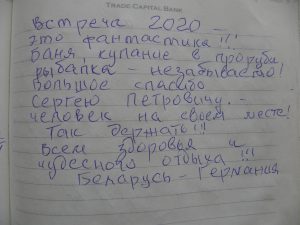 TRADE CAPITAL BANK
Встреча 2020 –
это фантастика!!!
Баня, купание в проруби
рыбалка – незабываемо!
Большое спасибо
Сергею Петровичу. –
человек на своем месте!
Так держать!!!
Всем здоровья и
чудесного отдыха!!!
Беларусь – Германия